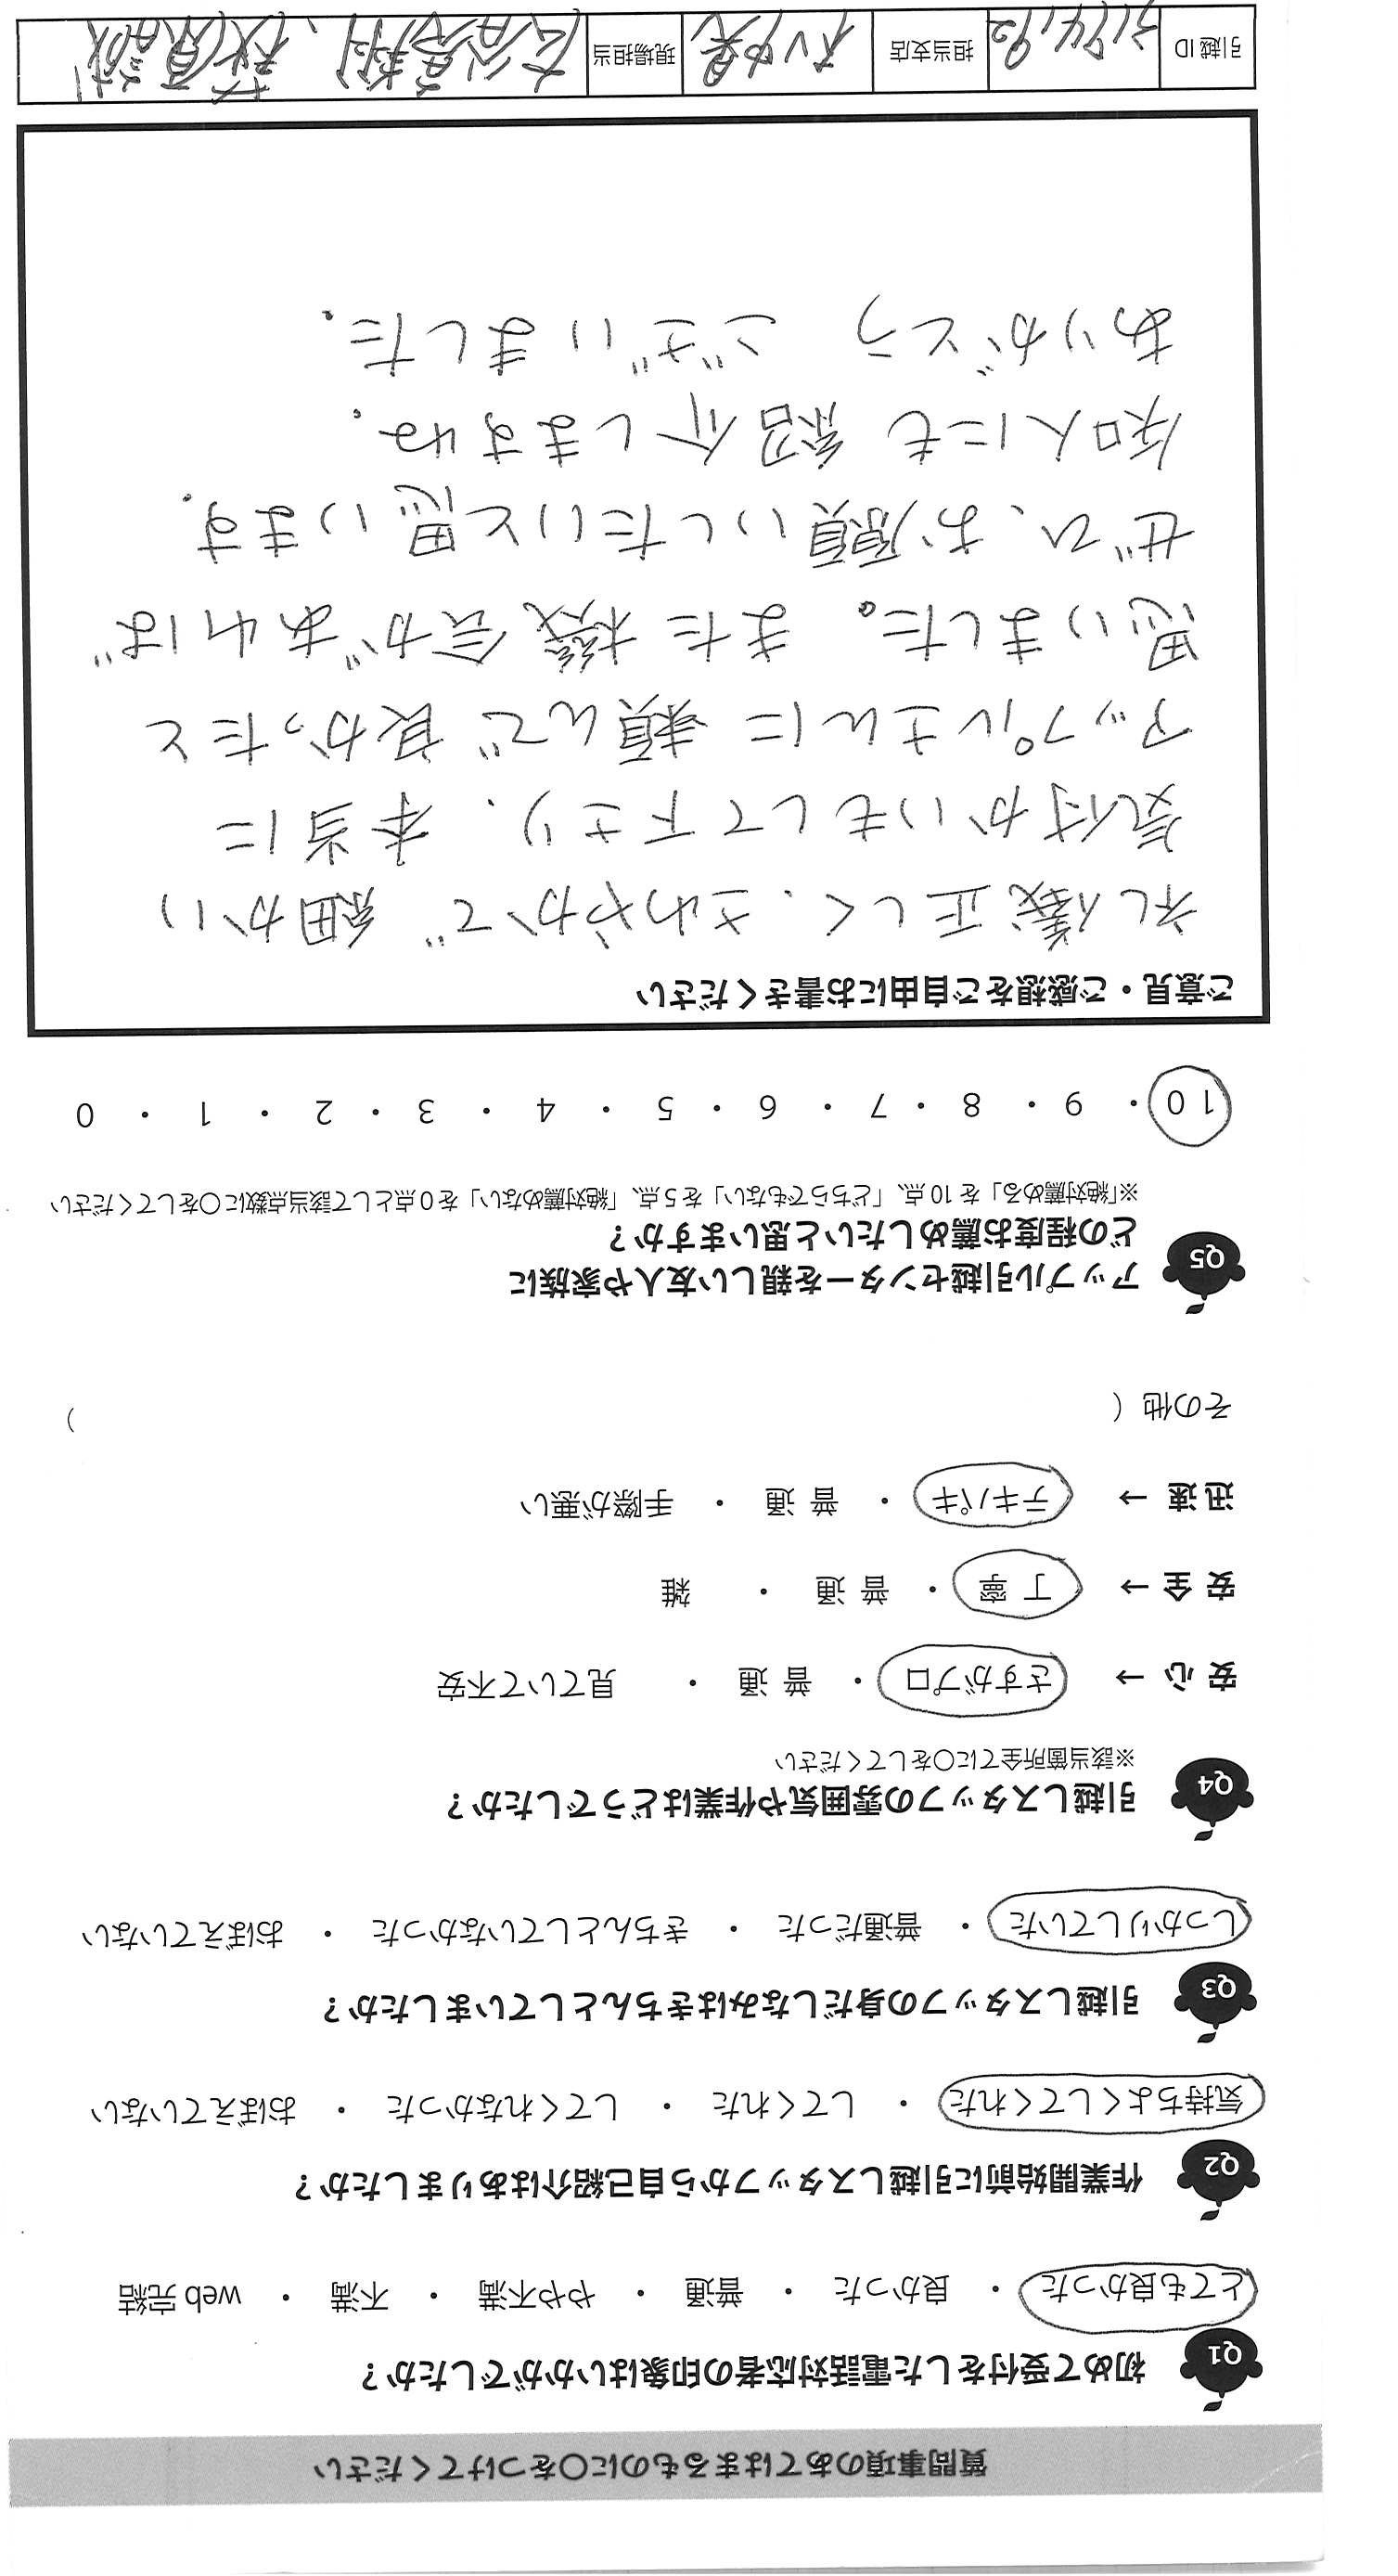 質問事項のあてはまるものに〇をつけてください
Q1 初めて受付をした電話対応者の印象はいかがでしたか？
とても良かった ・ 良かった ・ 普通 ・ やや不満 ・ 不満 ・ web 完結
Q2 作業開始前に引越しスタッフから自己紹介はありましたか？
気持ちよくしてくれた ・ してくれた ・ してくれなかった ・ おぼえていない
Q3 引越しスタッフの身だしなみはきちんとしていましたか？
しっかりしていた ・ 普通だった ・ きちんとしていなかった ・ おぼえていない
Q4 引越しスタッフの雰囲気や作業はどうでしたか？
※該当箇所全てに〇をしてください
安 心 → さすがプロ ・ 普 通 ・ 見ていて不安
安 全 → 丁 寧 ・ 普 通 ・ 雑
迅 速 → テキパキ ・ 普 通 ・ 手際が悪い
その他（ ）
Q5 アップル引越センターを親しい友人や家族に
どの程度お薦めしたいと思いますか？
※「絶対薦める」を 10 点、「どちらでもない」を 5 点、「絶対薦めない」を 0 点として該当点数に〇をしてください
10 ・ 9 ・ 8 ・ 7 ・ 6 ・ 5 ・ 4 ・ 3 ・ 2 ・ 1 ・ 0
ご意見・ご感想をご自由にお書きください
礼儀正しく、さわやかで 細かい
気付かいもして下さり、本当に
アップルさんに 頼んで 良かったと
思いました。また機会があれば
ぜひ、お願いしたいと思います。
知人にも 紹介しますね。
ありがとう ございました。
引越 ID 担当支店 現場担当